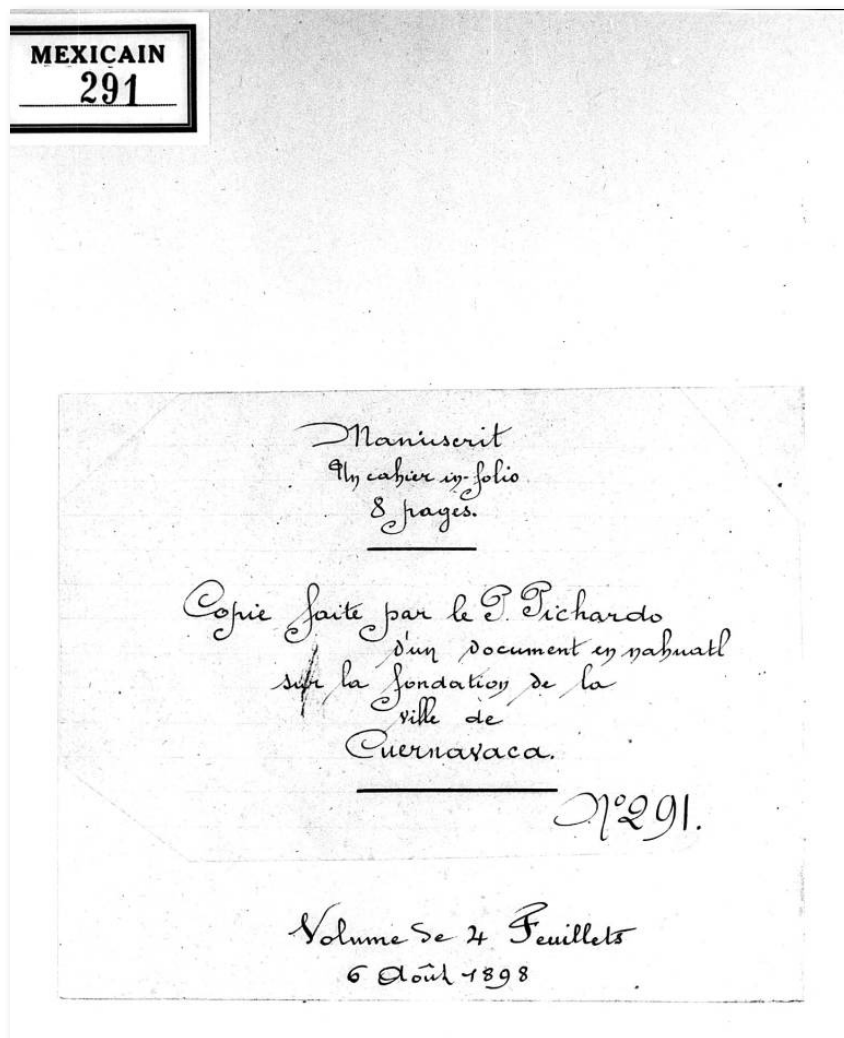 MEXICAIN
291
Manuscrit
Un cahier in-folio
8 pages.
Copie faite par le P. Pichardo
d'un document en nahuatl
sur la fondation de la
ville de
Cuernavaca.
Nº 291.
Volume de 4 Feuillets
6 Août 1898